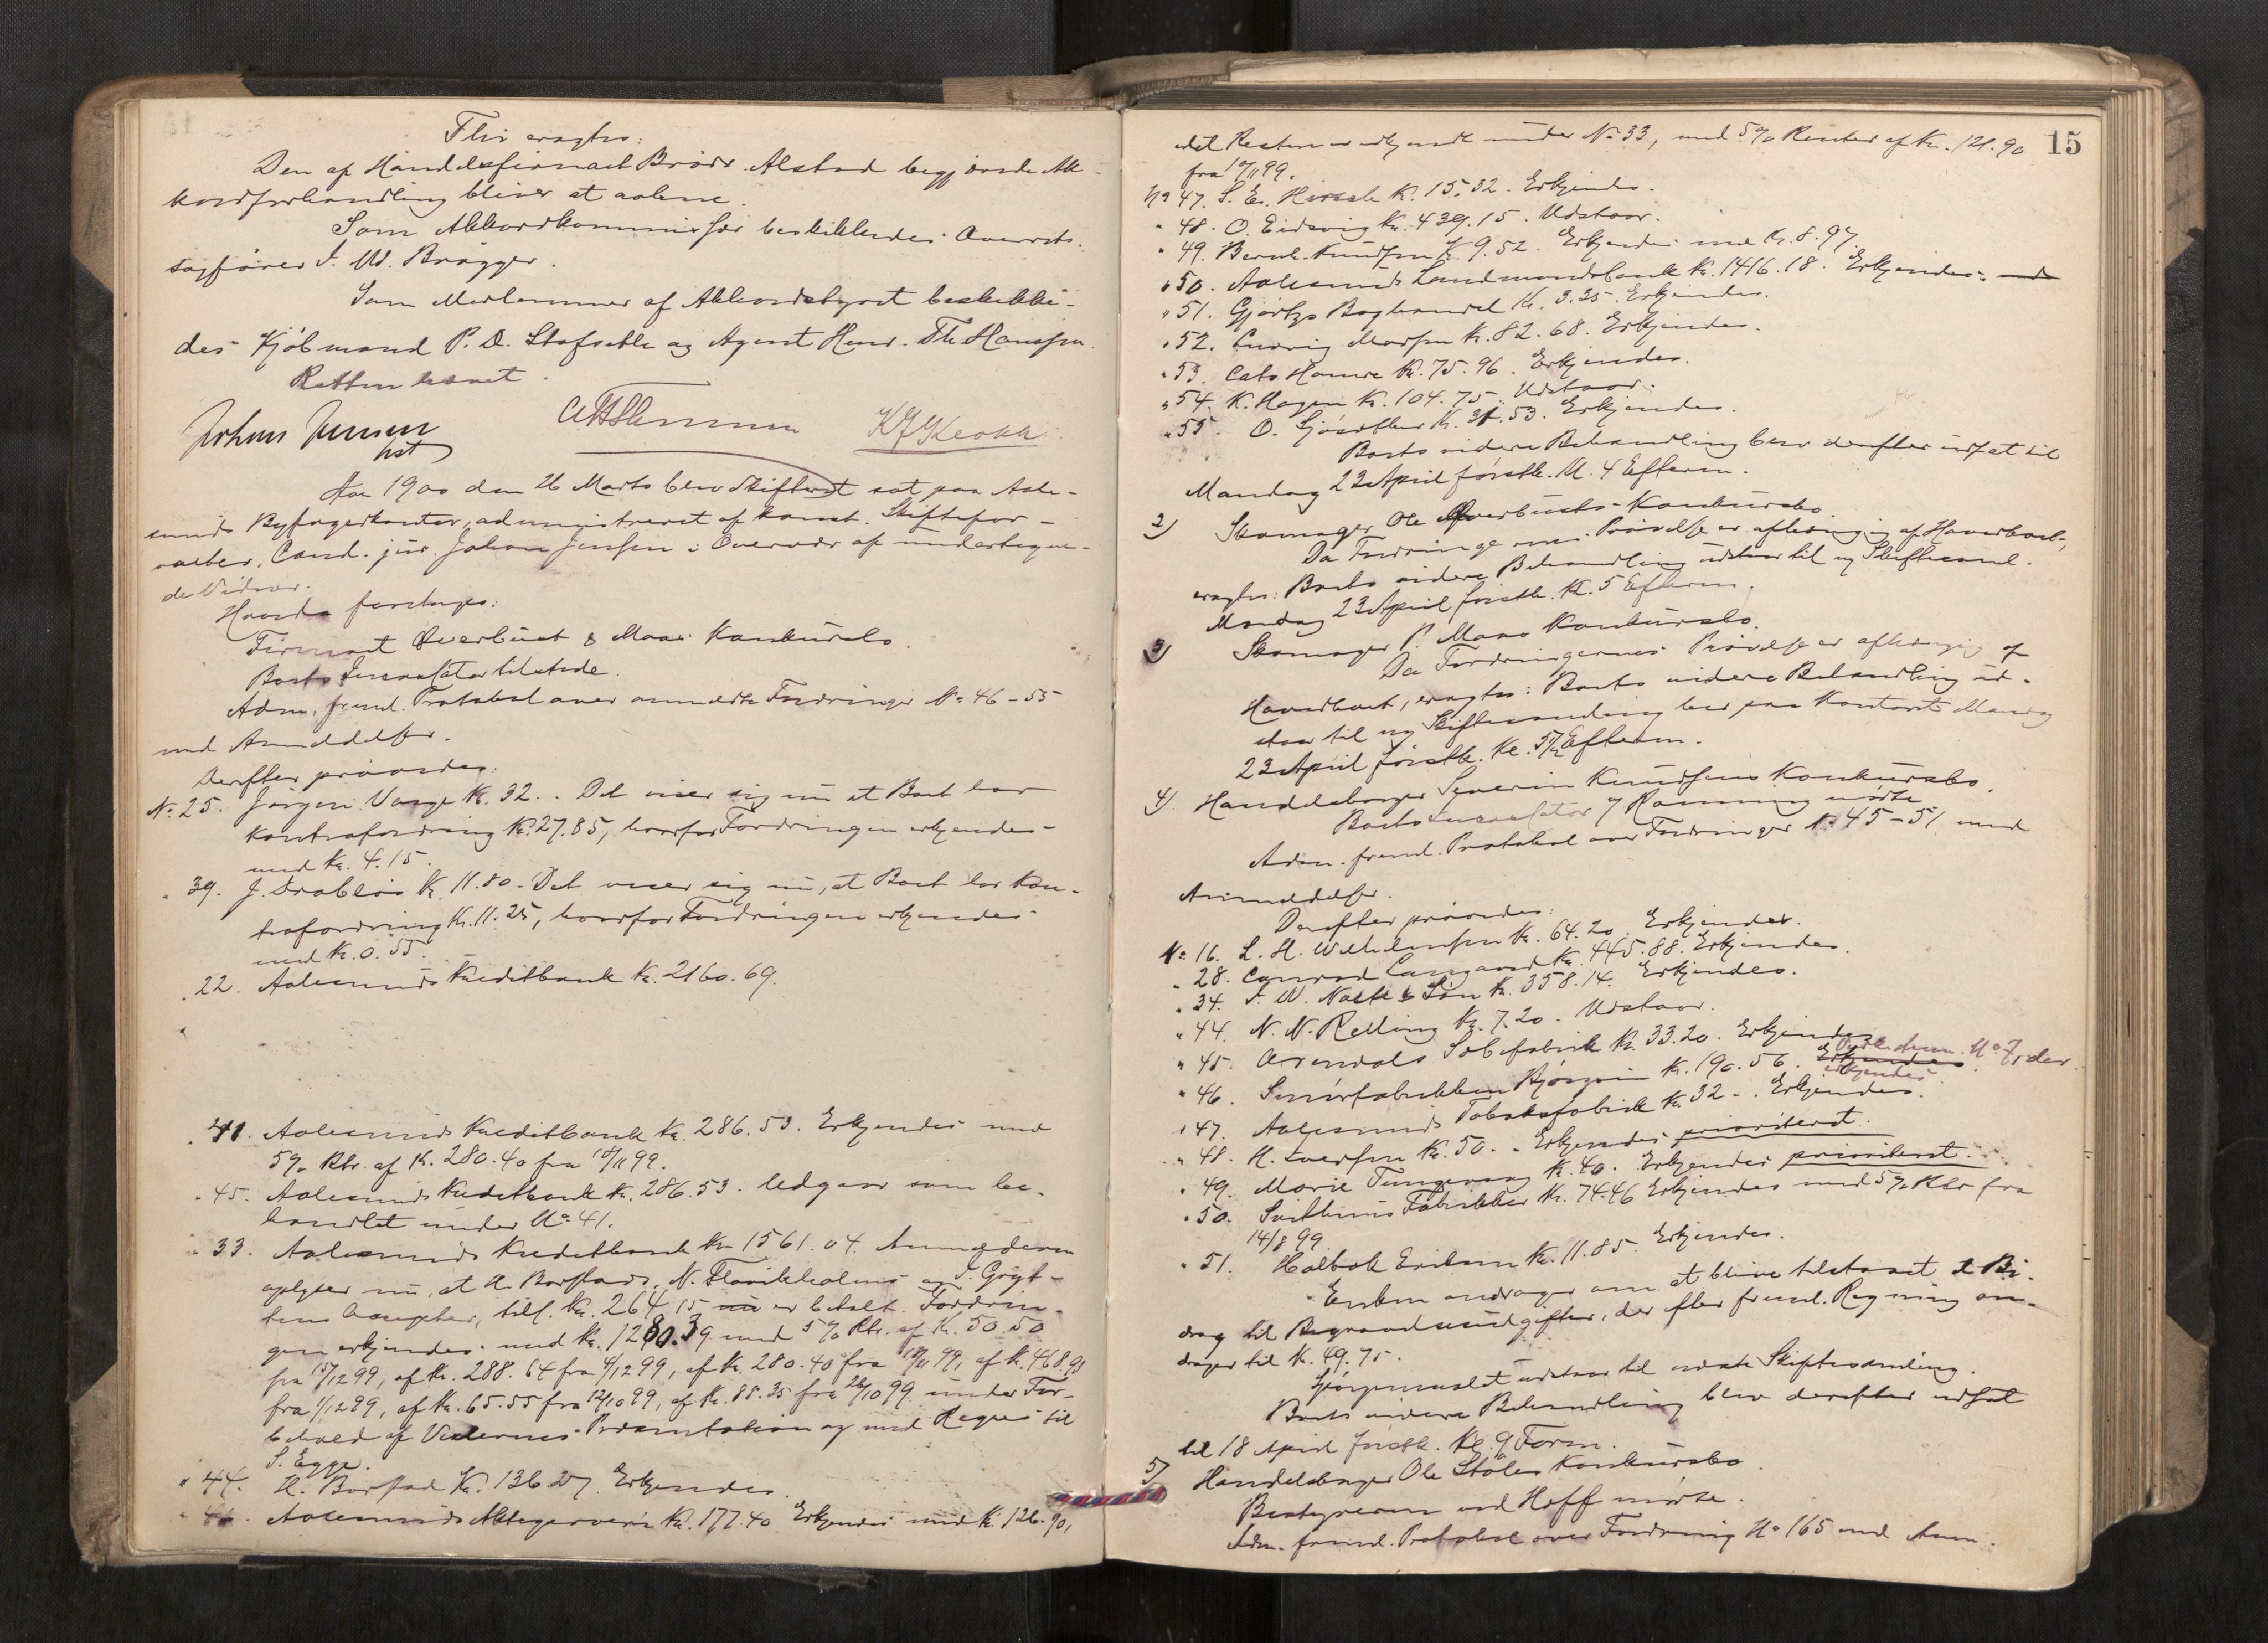 Thi eragtes:
Den af Handelsfirmaet Brødr. Alstad begjærede Ak-
kordforhandling bliver at aabne.
Som Akkordkommissær beskikkedes Overrets-
sagfører J. W. Brøgger.
Som Medlemmer af Akkordstyret beskikke-
des Kjøbmand P. O. Stafseth og Agent Henr. Th. Hansen.
Retten hævet.
Johan Jensen
cst
Aar 1900 den 26 Marts blev Skifteret sat paa Aale-
sunds Byfogedkontor, administreret af konst. Skiftefor-
valter, Cand. jur. Johan Jensen i Overvær af undertegne-
de Vidner.
Hvorda foretoges:
Firmaet Øverbust & Maas Konkursbo.
Boets Incassator tilstede.
Adm. freml. Protokol over anmeldte Fordringer No 46-55
med Anmeldelser.
Derefter prøvedes:
No 25. Jørgen Vasge Kr. 32.. Det viser sig nu at Boet har
kontrafordring Kr. 27.85, hvorfor Fordringen erkjendes
med Kr. 4.15.
" 39. J. Drabløs Kr. 11.80. Det viser sig nu, at Boet har kon-
trafordring Kr. 11.25, hvorfor Fordringen erkjendes
med Kr. 0.55.
" 22. Aalesunds Kreditbank Kr. 2160.69.
" 41. Aalesunds Kreditbank Kr. 286.53. Erkjendes med
5% Rtr. af Kr. 280.40 fra 18/11 99.
" 45. Aalesunds Kreditbank Kr. 286.53. Udgaar som be-
handlet under No 41.
" 33. Aalesunds Kreditbank Kr. 1561.04. Anmelderen
oplyser nu, at H. Borstads, N. Flovikholms og J. Gryt-
tens Accepter, tils. Kr. 264.15 nu er betalt. Fordrin-
gen erkjendes med Kr. 1280.39 med 5% Rtr. af Kr. 50.50
fra 15/12 99, af Kr. 288.64 fra 4/12 99, af Kr. 280.40 fra 18/11 99, af Kr. 468.93
fra 1/12 99, af Kr. 65.55 fra 12/10 99, af Kr. 88.35 fra 26/10 99 under For-
behold af Vexlernes Præsentation og med Regres til
S. Egge.
" 44. H. Borstad Kr. 136.27. Erkjendes.
" 46. Aalesunds Aktegarveri Kr. 177.40 Erkjendes med Kr. 126.90,
15
idet Resten er erkjendt under No 33, med 5% Renter af Kr. 121.90
fra 19/11 99.
No 47. S. Er. Kr. 15.32. Erkjendes.
" 48. O. Eidsvig Kr. 439.15. Udstaar.
" 49. Bernh. Knudsen Kr. 9.52. Erkjendes med Kr. 8.97
" 50. Aalesunds Landmandsbank Kr. 1416.18. Erkjendes. med
" 51. Gjørtzs Boghandel Kr. 3.35. Erkjendes.
" 52. Ludvig Kr. 82.68. Erkjendes.
" 53. Cato Hamre Kr. 75.96. Erkjendes.
" 54. K. Hagen Kr. 104.75. Udstaar.
" 55. O. Kr. 31.53. Erkjendes.
Boets videre Behandling blev derefter udsat til
Mandag 23 April førstk. Kl. 4 Efterm.
2) Skomager Ole Øverbusts Konkursbo.
Da Fordringernes Prøvelse er afhængig af Hovedboet,
eragtes: Boets videre Behandling udstaar til ny Skiftesaml.
Mandag 23 April førstk. Kl. 5 Efterm.
3) Skomager P. Maas Konkursbo.
Da Fordringernes Prøvelse er afhængig af
Hovedboet, eragtes: Boets videre Behandling ud-
staar til ny Skiftesamling her paa Kontoret Mandag
23 April førstk. Kl. 5½ Efterm.
4) Handelsborger Severin Knudsens Konkursbo.
Boets Incassator og Ramming mødte
Adm. freml. Protokol over Fordringer No 45-51 med
Anmeldelser.
Derefter prøvedes:
No 16. L. H. Wilhelmsen Kr. 64.20. Erkjendes.
" 28. Conrad Langaard Kr. 445.88. Erkjendes.
" 34. J. W. & Søn Kr. 358.14. Erkjendes.
" 44. N. N. Relling Kr. 7.20. Udstaar.
" 45. Arendals Kr. 33.20. Erkjendes
" 46. Smørfabrikken Kr. 190.56. Erkjendes. No 7, der
erkjendes.
" 47. Aalesunds Tobaksfabrik Kr. 32-. Erkjendes.
" 48. H. Iversen Kr. 50.- Erkjendes prioriteret.
" 49. Marie Tungevaag Kr. 40. Erkjendes prioriteret.
" 50. Fabrikker Kr. 74.46 Erkjendes med 5% Rtr fra
14/8 99
" 51. Eriksen Kr. 11.85. Erkjendes.
Enken andrager om at blive tilstaaet et Bi-
drag til Begravelsesudgifter, der efter freml. Regning an-
drager til Kr. 49.75.
Spørgsmaalet udstaar til næste Skiftesamling.
Boets videre Behandling blev derefter udsat
til 18 April førstk. Kl. 9 Form.
5) Handelsborger Ole Støles Konkursbo.
Bestyreren ved Hoff mødte.
Adm. freml. Protokol over Fordring No 165 med Anm.